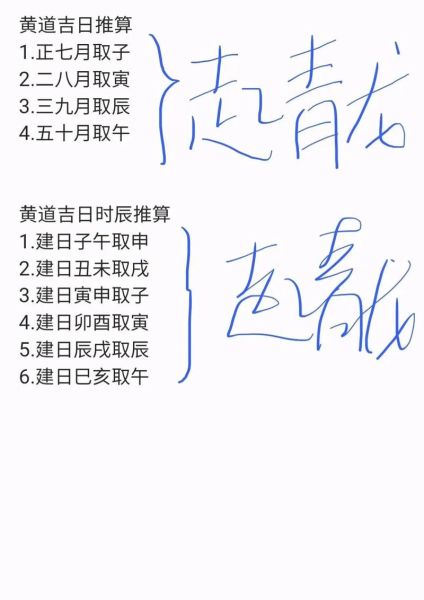 黄道吉日推算
1.正七月取子
2.二八月取寅
3.三九月取辰
4.五十月取午
起青龙
黄道吉日时辰推算
1.建日子午取申
2.建日丑未取戌
3.建日寅申取子
4.建日卯酉取寅
5.建日辰戌取辰
6.建日巳亥取午
起青龙